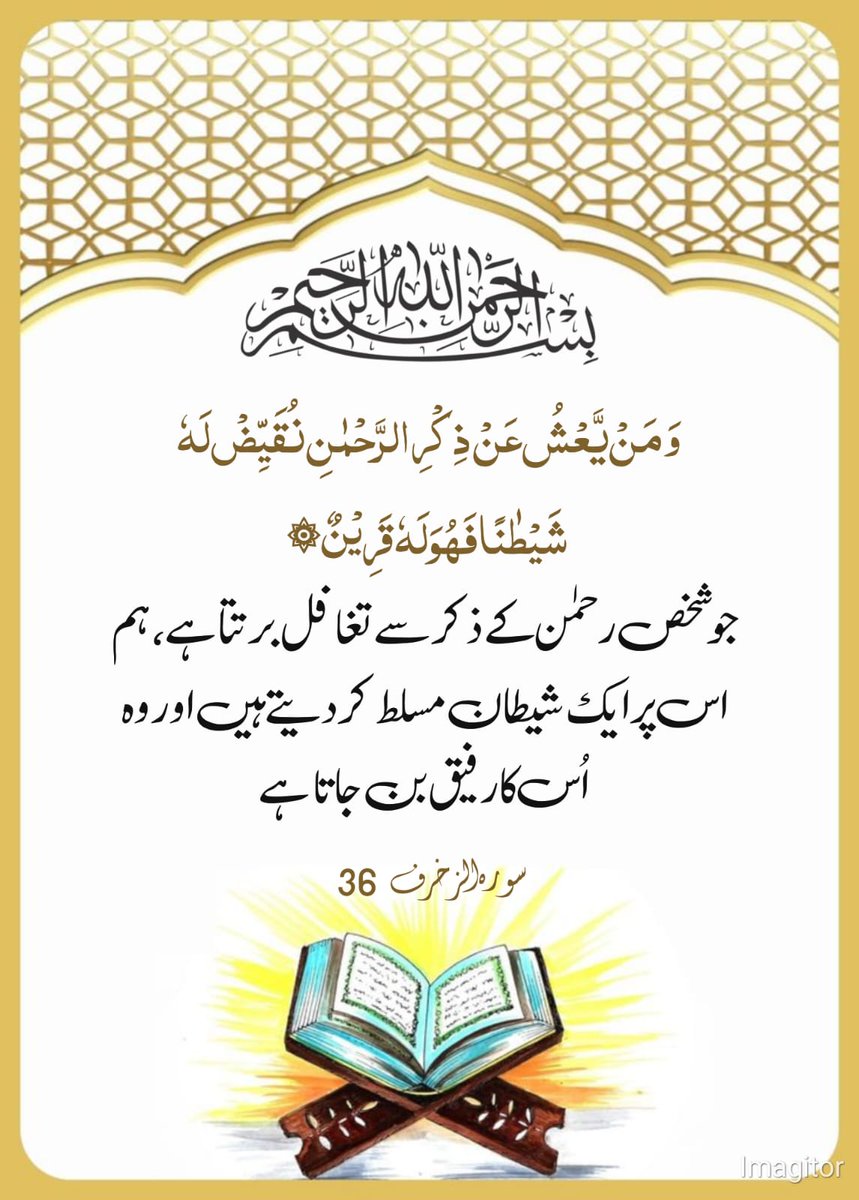 بِسْمِ اللهِ الرَّحْمٰنِ الرَّحِيْمِ
وَمَنْ يَّعْشُ عَنْ ذِكْرِ الرَّحْمٰنِ نُقَيِّضْ لَهٗ
شَيْطٰنًا فَهُوَ لَهٗ قَرِيْنٌ ۞
جو شخص رحمٰن کے ذکر سے تغافل برتتا ہے، ہم
اس پر ایک شیطان مسلط کر دیتے ہیں اور وہ
اُس کا رفیق بن جاتا ہے
سورہ الزخرف 36
Imagitor